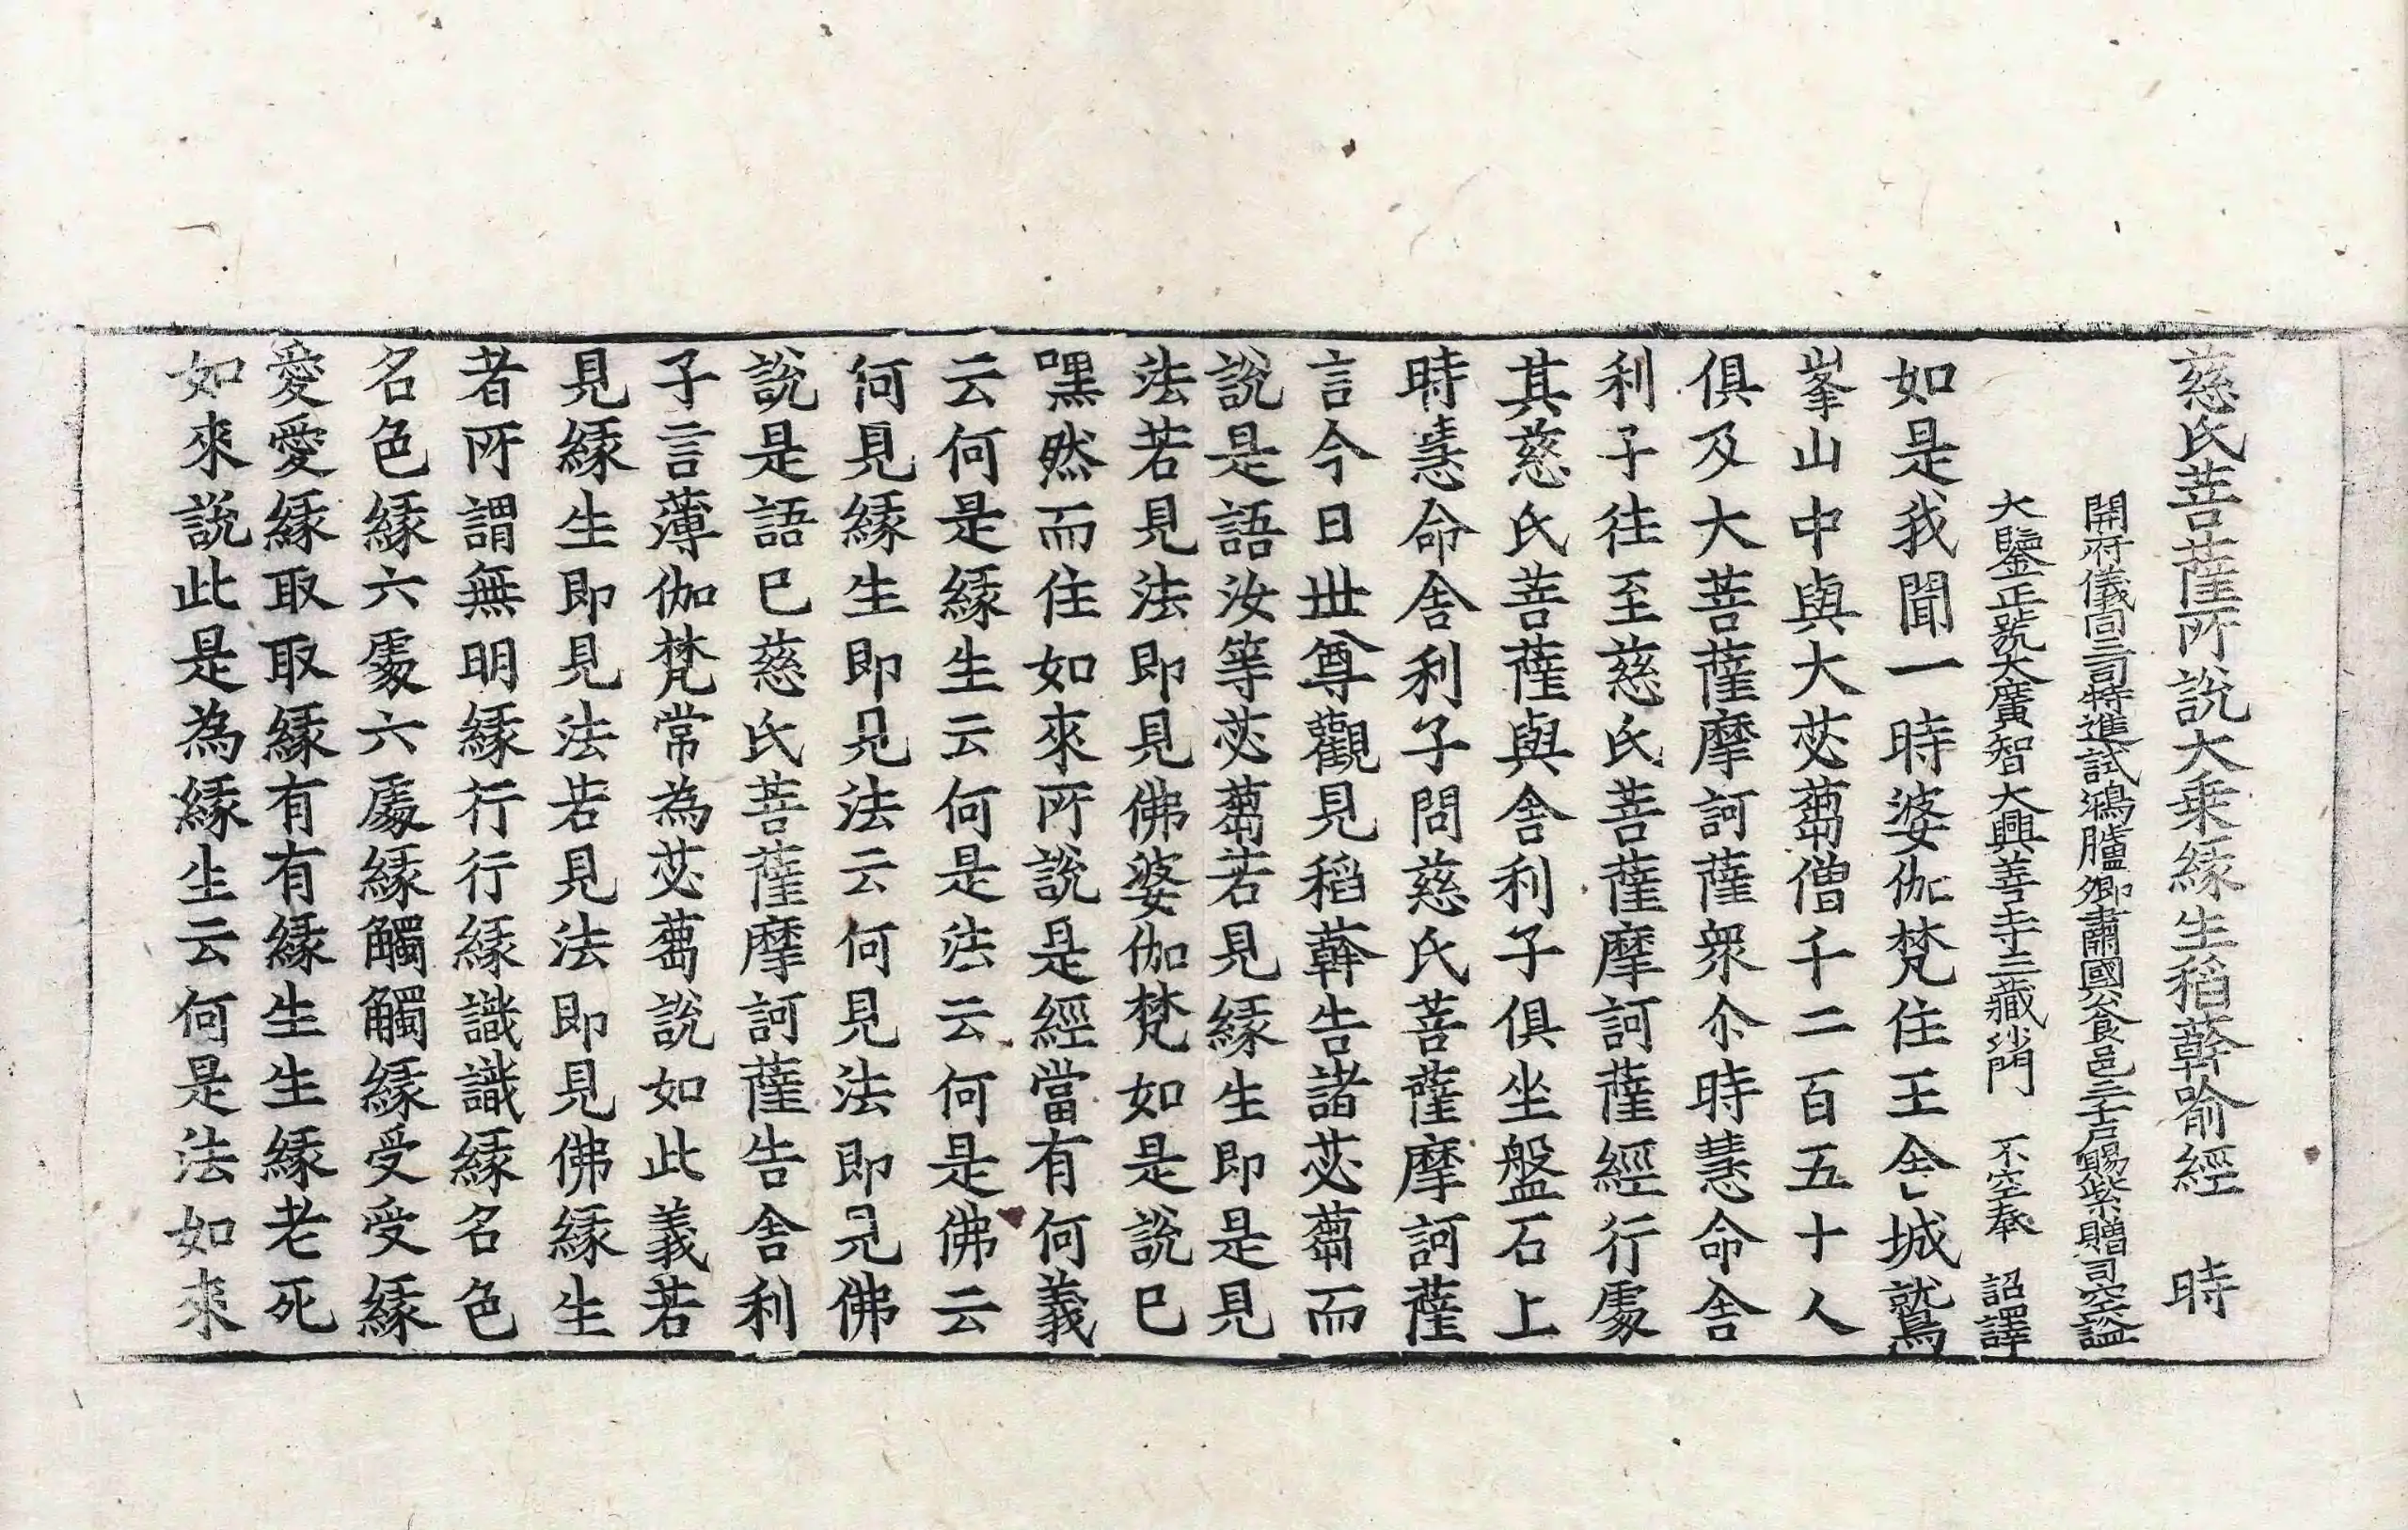 慈氏菩薩所說大乗縁生稻𦼮喻經　時
開府儀同三司特進試鴻臚卿肅國公食邑三千戶賜紫贈司空謚
大鑒正號大廣智大興善寺三藏沙門　不空奉　詔譯
如是我聞一時婆伽梵住王舍城鷲
峯山中與大苾蒭僧千二百五十人
俱及大菩薩摩訶薩衆尒時慧命舍
利子往至慈氏菩薩摩訶薩經行處
其慈氏菩薩與舍利子俱坐盤石上
時慧命舍利子問慈氏菩薩摩訶薩
言今日世尊觀見稻𦼮告諸苾蒭而
說是語汝等苾蒭若見縁生即是見
法若見法即見佛婆伽梵如是說已
嘿然而住如來所說是經當有何義
云何是縁生云何是法云何是佛云
何見縁生即見法云何見法即見佛
說是語已慈氏菩薩摩訶薩告舍利
子言薄伽梵常為苾蒭說如此義若
見縁生即見法若見法即見佛縁生
者所謂無明縁行行縁識識縁名色
名色縁六處六處縁觸觸縁受受縁
愛愛縁取取縁有有縁生生縁老死
如來說此是為縁生云何是法如來